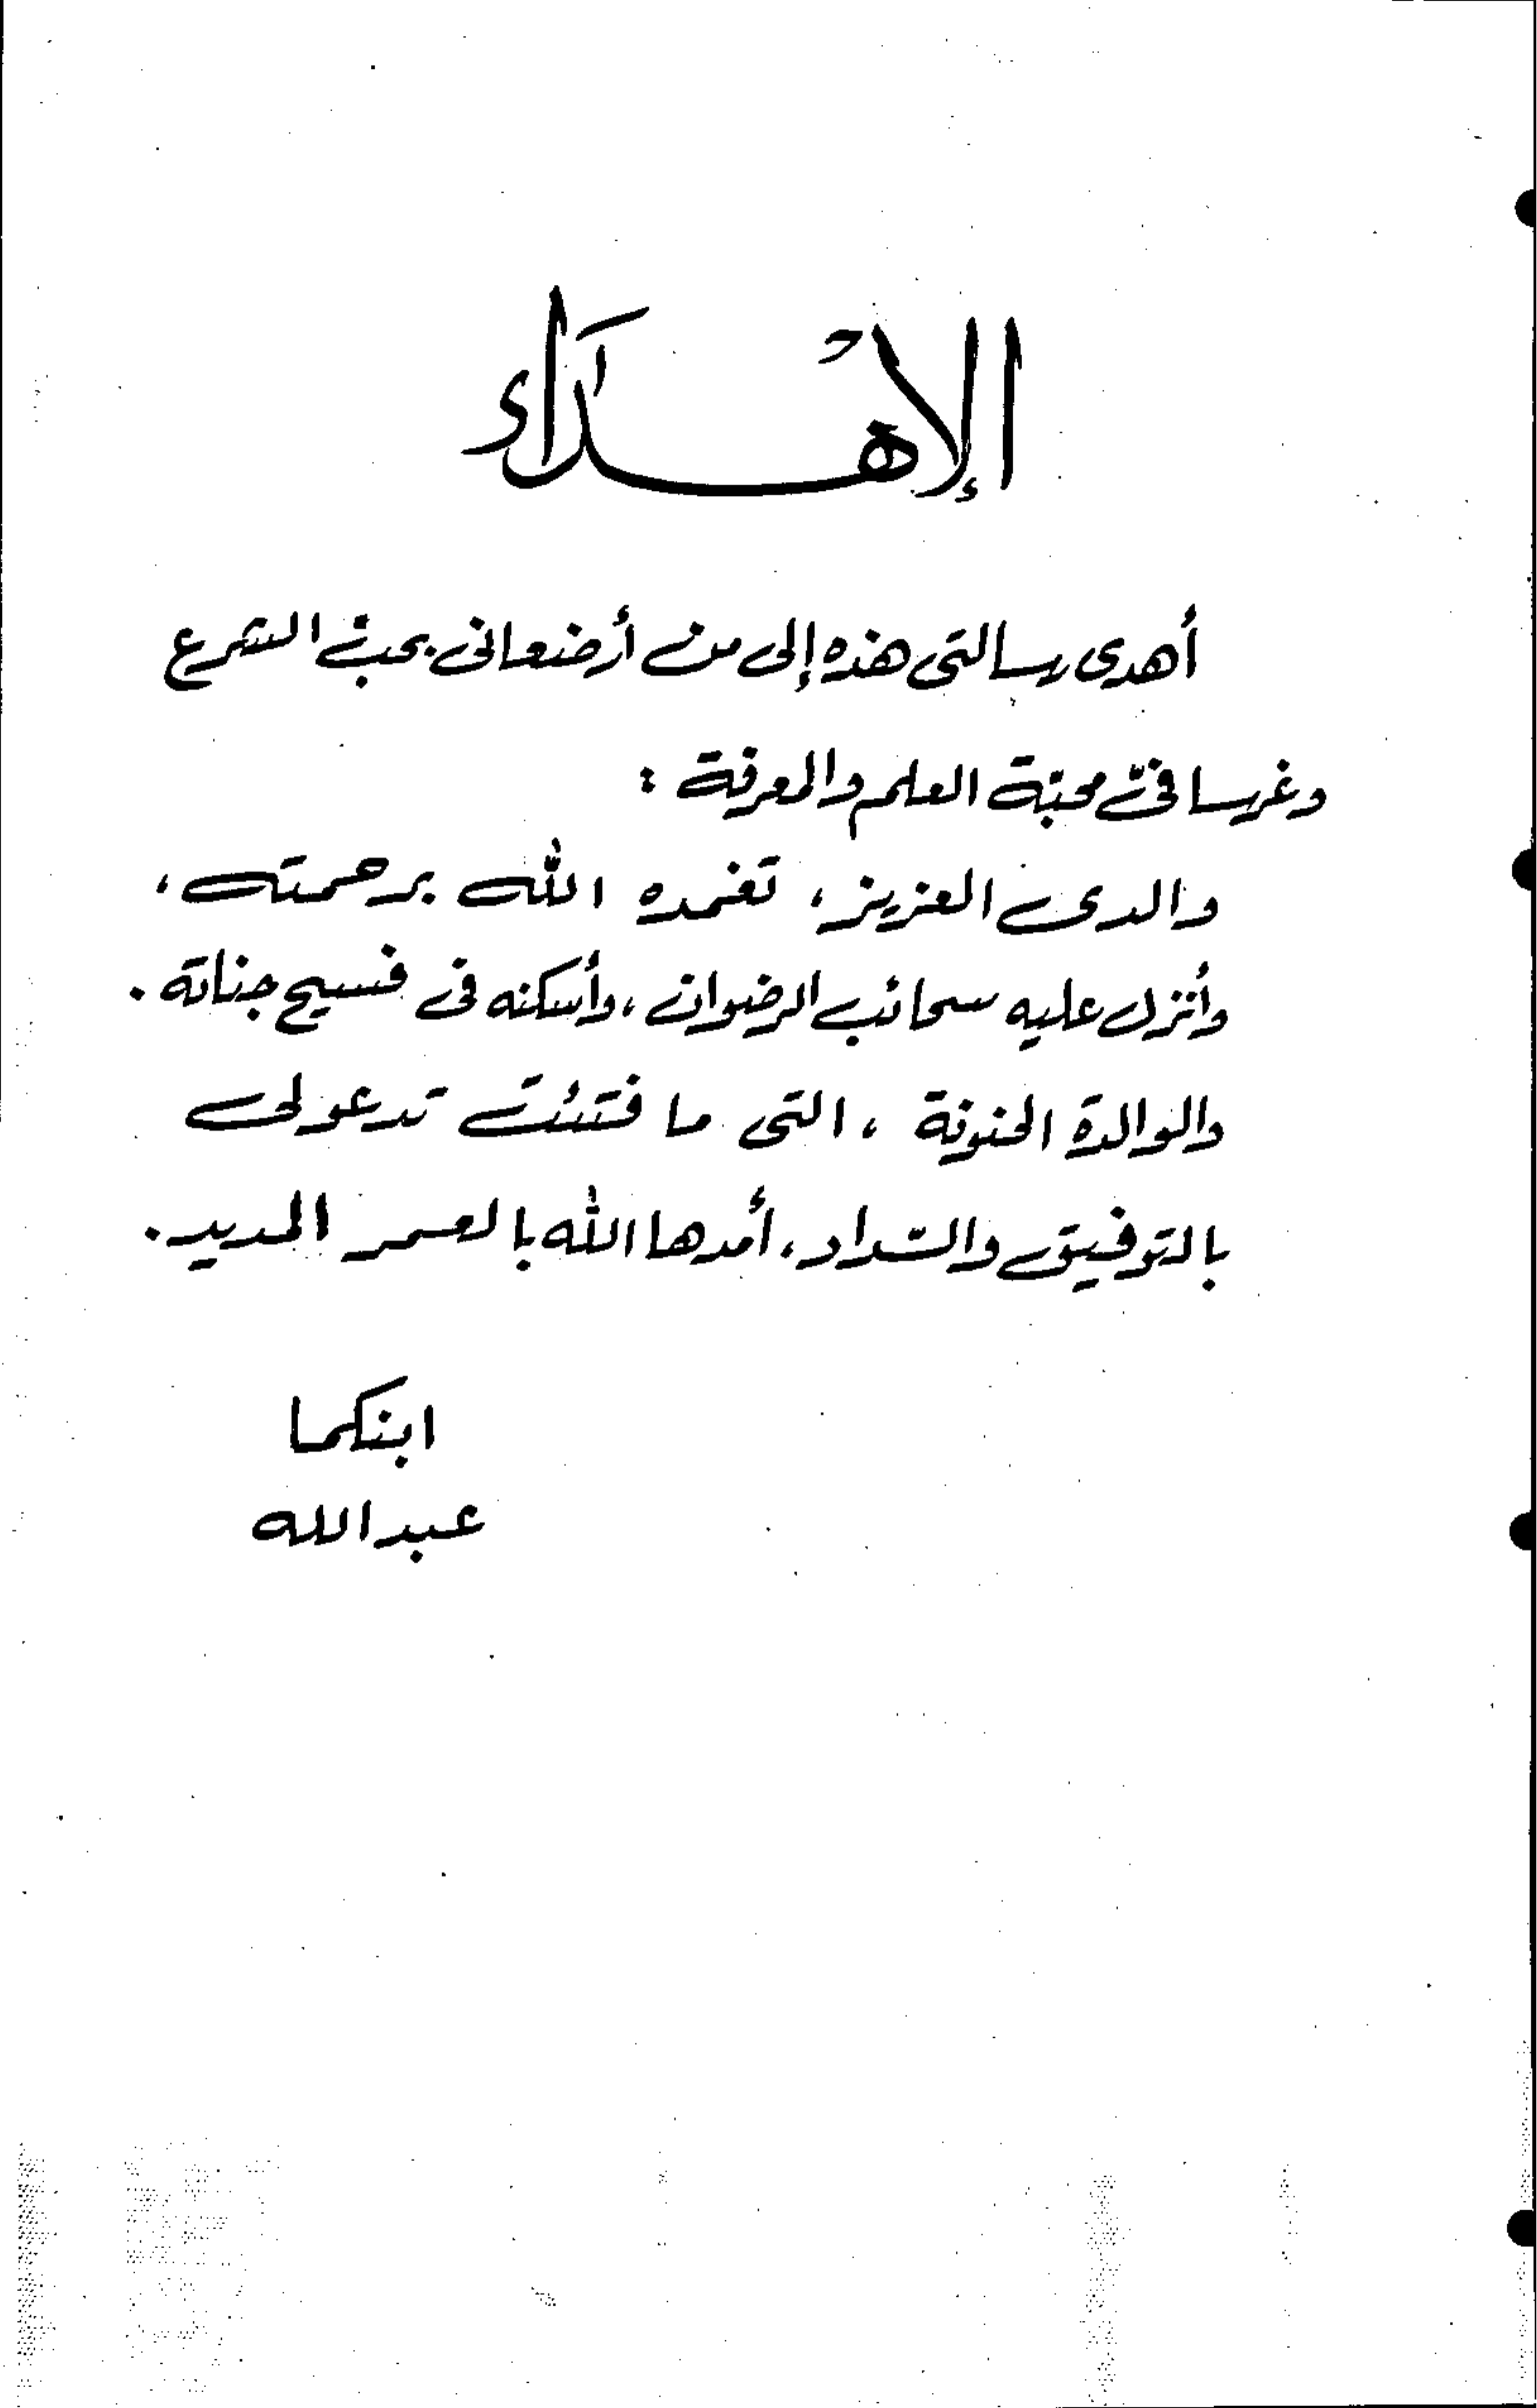 الإهداء
أهدى رسالتى هذه إلى من أرضعانى بحب الشرع
وغرسا فىّ محبّة العلم والمعرفة :
والدى العزيز، تغمده اللّه برحمته،
وأنزل عليه سحائب الرضوان، وأسكنه فى فسيح جناته .
والوالدة الحنونة ، التى ما فتئت تدعو لى
بالتوفيق والسّداد، أمدها اللّه بالعمر المديد.
ابنكما
عبد الله